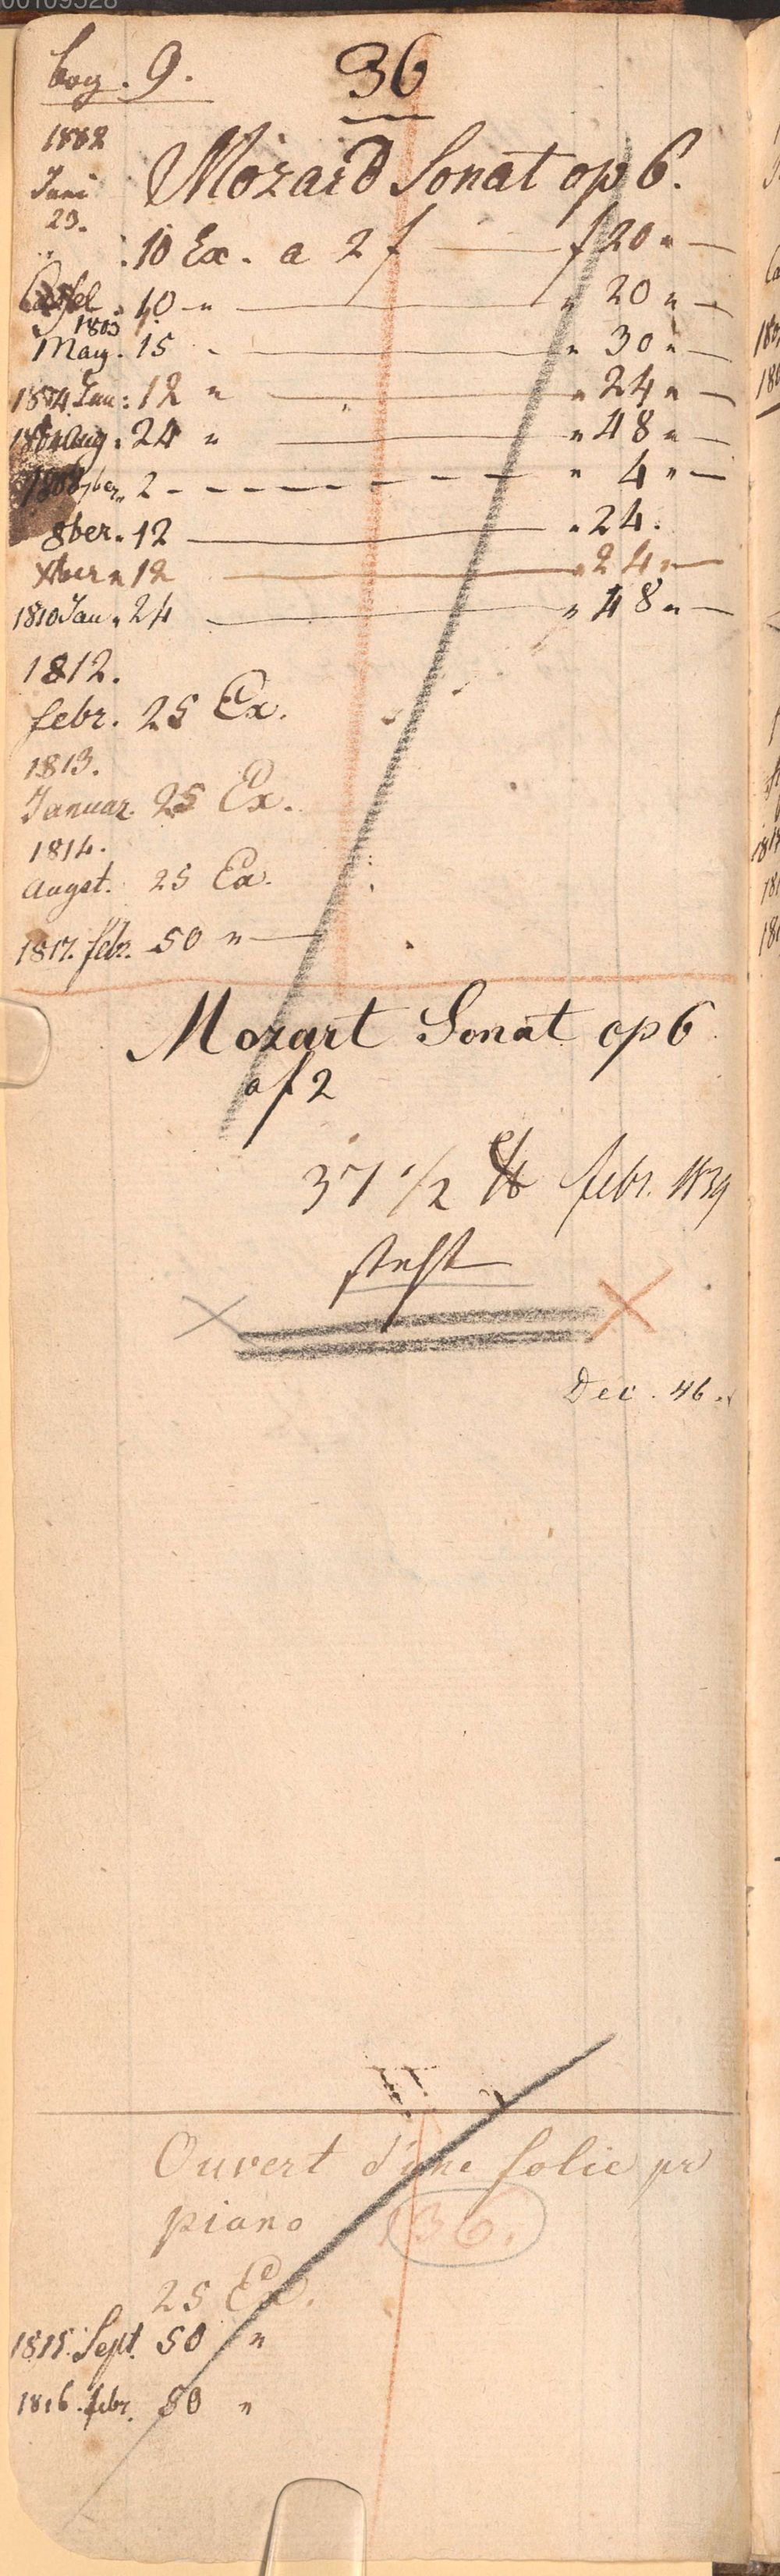 00109528
bog. 9. 36
1802
Mozard Sonat op 6.
Juni
23.
10 Ex. a 2 f — f 20 " —
Cassel 10 " — " 20 " —
1803
May. 15 " — " 30 " —
1804 Jan: 12 " — " 24 " —
1804 Aug: 24 " — " 48 " —
1808 7ber " 2 - - - - - " 4 " —
8ber " 12 — " 24.
Xber " 12 — " 24 " —
1810 Jan " 24 — " 48 " —
1812.
febr. 25 Ex.
1813.
Januar. 25 Ex.
1814.
Augst. 25 Ex.
1817. febr. 50 " —
Mozart Sonat op 6
a f 2
37 1/2 febr. 1839
steht
Dec. 46.
Ouvert d'une folie pr
piano 136.
25 Ex.
1815. Sept. 50 "
1816. febr. 50 "